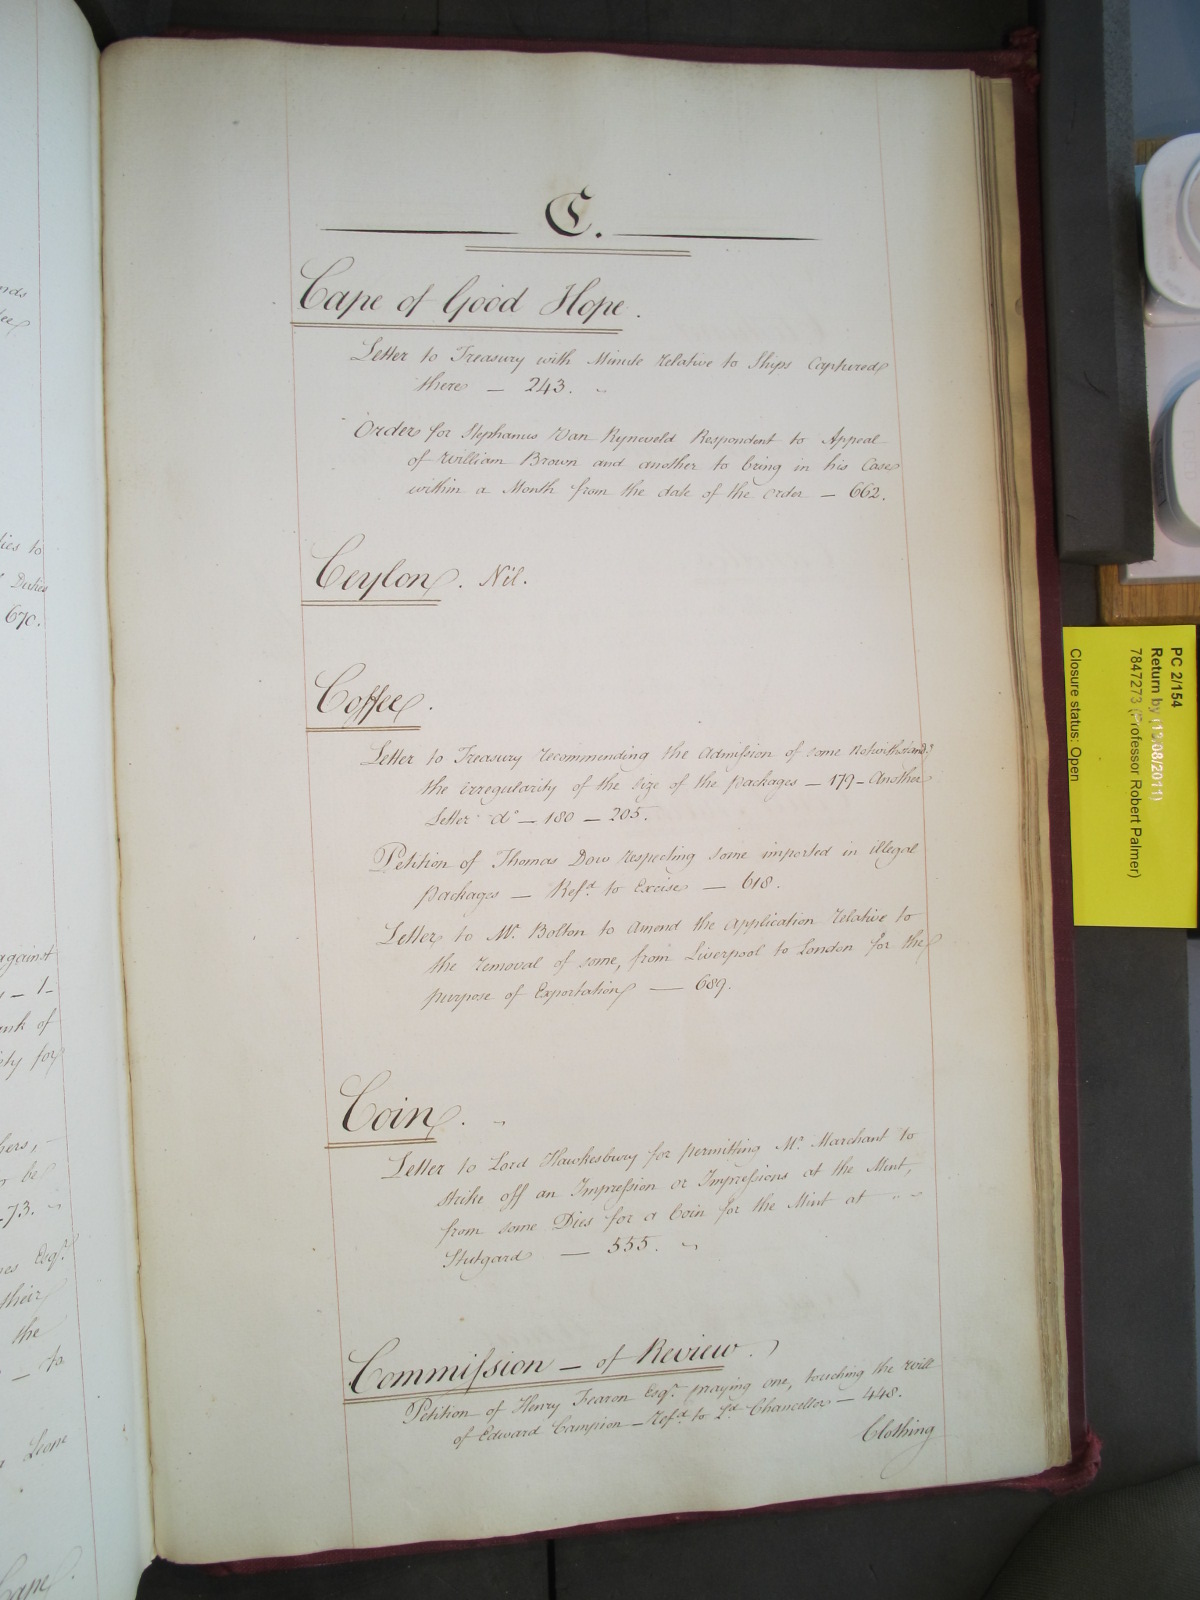 C.
Cape of Good Hope.
Letter to Treasury with Minute relative to Ships Captured
there — 243.
Order for Stephanus Van Ryneveld Respondent to Appeal
of William Brown and another to bring in his Case
within a Month from the date of the Order — 662.
Ceylon. Nil.
Coffee.
Letter to Treasury recommending the Admission of some Notwithstandg
the irregularity of the Size of the Packages — 179 — Another
Letter do — 180 — 205.
Petition of Thomas Dow respecting some imported in illegal
Packages — Refd to Excise — 618.
Letter to Mr. Bolton to Amend the Application relative to
the removal of some, from Liverpool to London for the
purpose of Exportation — 689.
Coin.
Letter to Lord Hawkesbury for permitting Mr. Marchant to
strike off an Impression or Impressions at the Mint,
from some Dies for a Coin for the Mint at
Stutgard — 555.
Commission — of Review.
Petition of Henry Fearon Esqr. praying one, touching the Will
of Edward Campion — Refd to Ld Chancellor — 448.
Clothing
nds
ties to
Duties
670.
against
— 1 —
ank of
ety for
hers, —
be
73.
es Esqr.
their
the
— to
Leone
Cape.
PC 2/154
Return by (12/08/2011)
7847273 (Professor Robert Palmer)
Closure status: Open